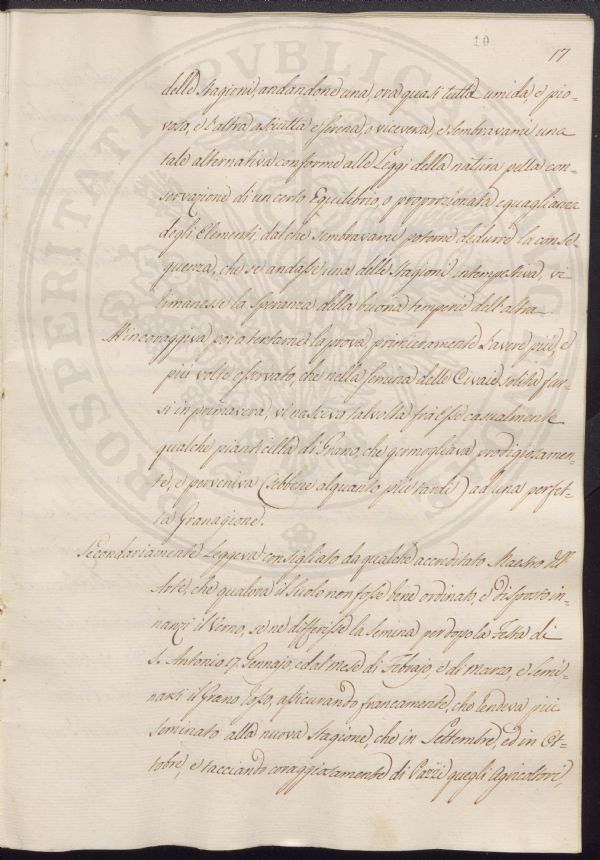 10
17
delle stagioni, andandone una, ora quasi tutta umida, e pio-
vosa, e l'altra asciutta e serena, o viceversa, e sembravami una
tale alternativa conforme alle Leggi della natura pella con-
servazione di un certo Equilibrio, o proporzionata eguaglianza
degli Elementi, dal che sembravami poterne dedurre la conse-
guenza, che se andasse una delle stagioni intempestiva, vi
rimanesse la speranza della buona temperie dell'altra.
M'incoraggiva poi a tentarne la prova primieramente l'avere più, e
più volte osservato, che nella semina delle Civaie solita far-
si in primavera, vi nasceva talvolta frà esse casualmente
qualche pianticella di Grano, che germogliava prodigiosamen-
te, e perveniva (sebbene alquanto più tarde) ad una perfet-
ta Granagione.
Secondariamente Leggeva consigliato da qualche accreditato Maestro dell'
Arte, che qualora il suolo non fosse bene ordinato, e disposto in-
nanzi il Verno, se ne differisse la semina per dopo la Festa di
S. Antonio 17 Gennajo, e dal mese di Febrajo, e di Marzo, e semi-
narsi il Grano Toso, assicurando francamente, che rendeva più
seminato alla nuova stagione, che in Settembre, ed in Ot-
tobre, e tacciando coraggiosamente di Pazzi quegli Agricoltori,
PROSPERITATI PVBLICAE